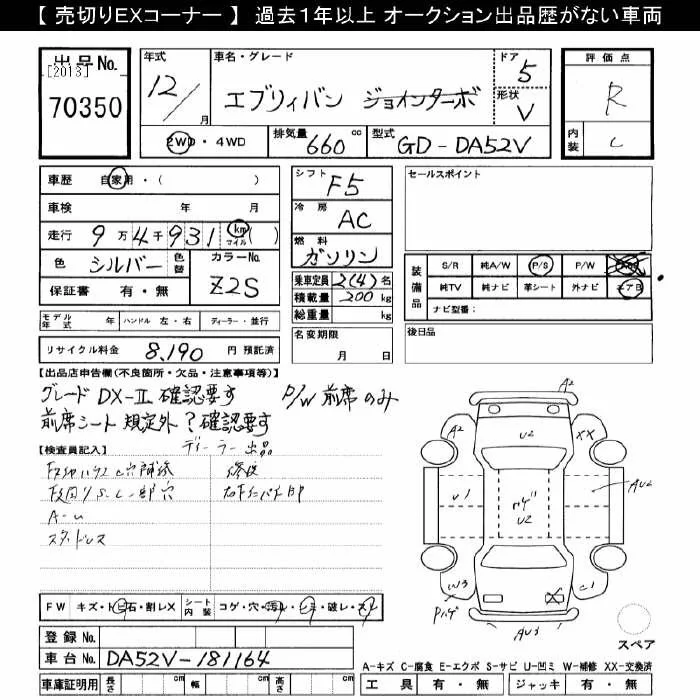 【 売切りEXコーナー 】 過去1年以上 オークション出品歴がない車両
出品No.
[2013]
70350
年式
12/
月
車名・グレード
エブリィバン ジョインターボ
ドア
5
形状
V
評価点
R
内装
C
2WD・4WD
排気量 660 cc
型式 GD-DA52V
車歴 自家用・( )
車検 年 月
走行 9万4千931 km マイル ( )
色 シルバー 色替
カラーNo. Z2S
保証書 有・無
シフト F5
冷房 AC
燃料 ガソリン
乗車定員 2(4)名
積載量 200 kg
総重量 kg
セールスポイント
装備品
S/R 純A/W P/S P/W
純TV 純ナビ 革シート 外ナビ エアB
ナビ型番:
モデル年式 年 ハンドル 左・右 ディーラー・並行
リサイクル料金 8,190 円 預託済
名変期限 月 日
後日品
【出品店申告欄(不良箇所・欠品・注意事項等)】
グレード DX-II 確認要す P/W 前席のみ
前席シート 規定外?確認要す
ディーラー出品
【検査員記入】
FW キズ・トビ石・割レX シート内装 コゲ・穴・汚レ・シミ・破レ・スレ
登録No.
車台No. DA52V-181164
車庫証明用 長さ cm 幅 cm 高さ cm
A2
A2
U2
XX
U1
U2
AU2
W3
C1
X
AU3
スペア
A-キズ C-腐食 E-エクボ S-サビ U-凹ミ W-補修 XX-交換済
工具 有・無 ジャッキ 有・無